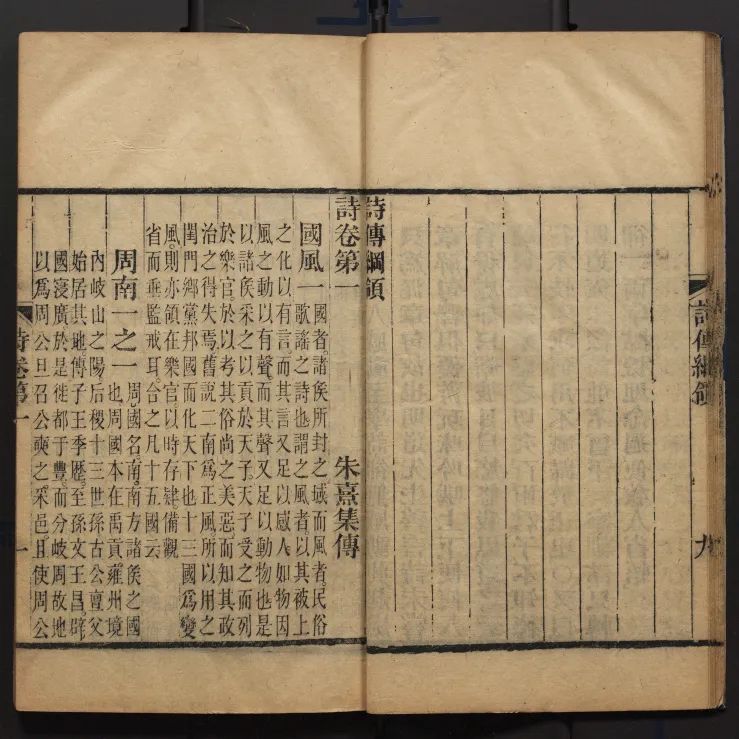 詩傳綱領
九
詩傳綱領
詩卷第一
朱熹集傳
國風一
國者。諸侯所封之域。而風者。民俗
歌謠之詩也。謂之風者。以其被上
之化以有言。而其言又足以感人。如物因
風之動以有聲。而其聲又足以動物也。是
以諸侯采之以貢於天子。天子受之而列
於樂官。於以考其俗尚之美惡。而知其政
治之得失焉。舊說二南爲正風。所以用之
閨門鄉黨邦國而化天下也。十三國爲變
風。則亦領在樂官。以時存肄。備觀
省而垂監戒耳。合之凡十五國云
周南一之一
周。國名。南。南方諸侯之國
也。周國本在禹貢雍州境
內岐山之陽。后稷十三世孫古公亶父
始居其地。傳子王季歷。至孫文王昌。辟
國寖廣。於是徙都于豐。而分岐周故地
以爲周公旦召公奭之采邑。且使周公
詩卷第一
一